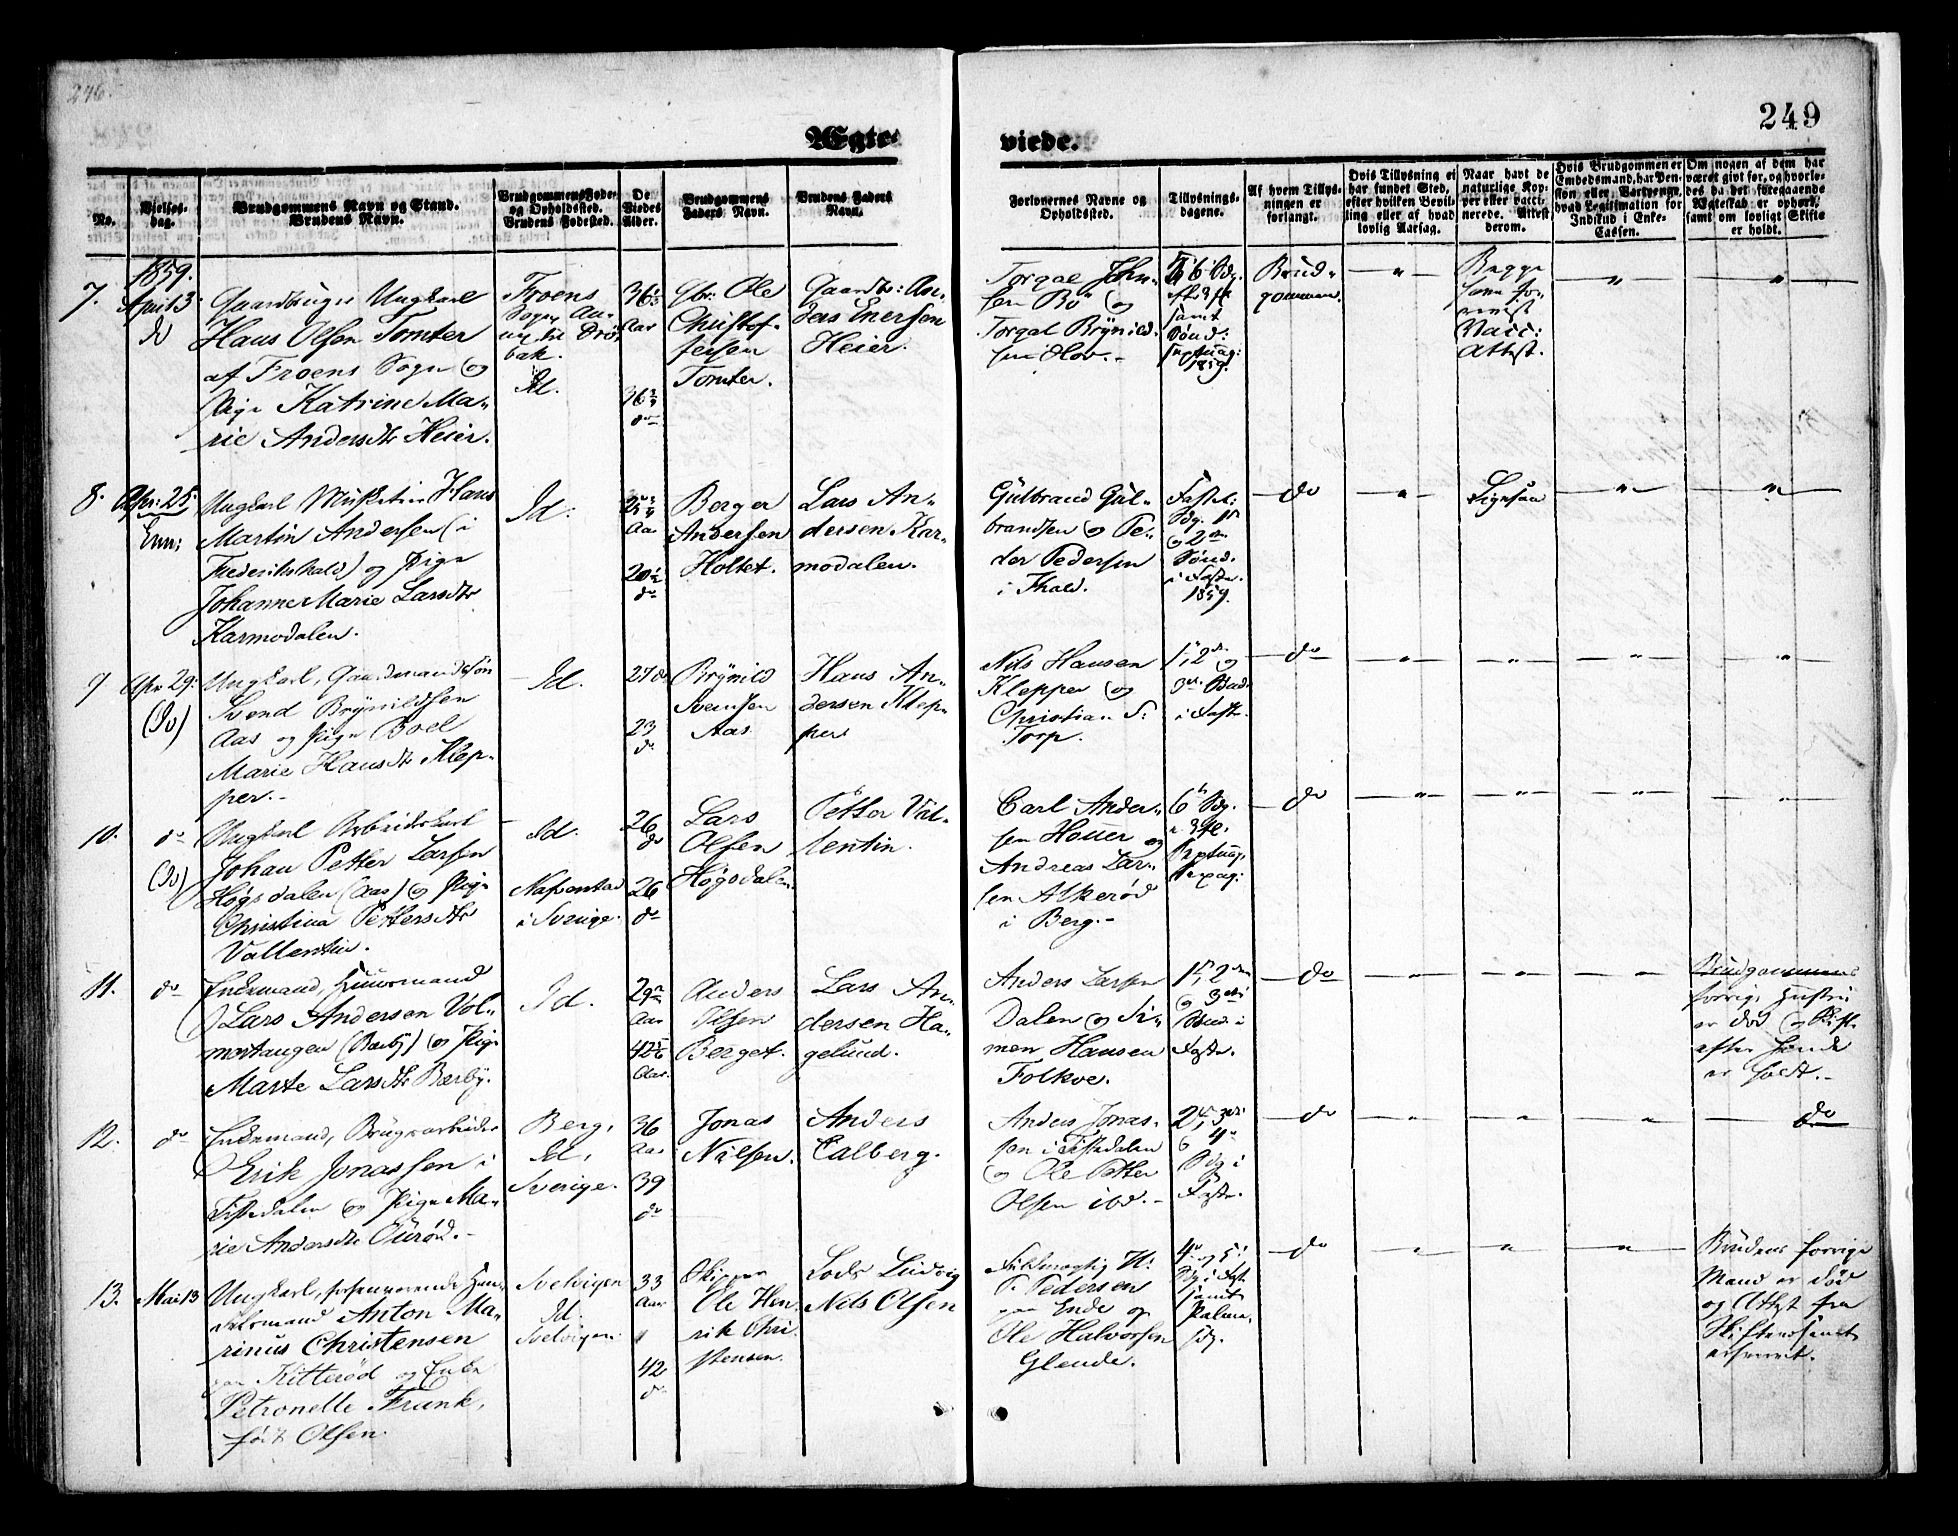 249
Ægte-
viede.
No.
Vielses-
dag.
Brudgommens Navn og Stand.
Brudens Navn.
Brudgommens Føde-
og Opholdssted.
Brudens Fødested.
De
Viedes
Alder.
Brudgommens
Faders Navn.
Brudens Faders
Navn.
Forlovernes Navne og
Opholdssted.
Tillysnings-
dagene.
Af hvem Tillys-
ningen er
forlangt.
Hvis Tillysning ei
har fundet Sted,
efter hvilken Bevil-
ling eller af hvad
lovlig Aarsag.
Naar havt de
naturlige Kop-
per eller vacci-
nerede. Attest
derom.
Hvis Brudgommen er
Embedsmand, har Pen-
sion eller Vartpenge,
hvad Legitimation for
Indskud i Enke-
Cassen.
Om nogen af dem har
været givt før, og hvorle-
des da det foregaaende
Ægteskab er ophørt,
samt om lovligt Skifte
er holdt.
1859.
7.
April 3
do
Gaardbruger Ungkarl
Hans Olsen Tomter
af Froens Sogn og
Pige Katrine Ma-
rie Andersdtr Heier.
Froens
Sogn An-
nex til Drö-
bak.
Id.
36
Aar
36
do
Gbr: Ole
Christof-
fersen
Tomter.
Gaardbr: An-
ders Enersen
Heier.
Torgal John-
sen Bö og
Torgal Brÿnild-
sen Hov.-
6 Sdg.
samt
Sönd:
septuag:
1859.
Brud-
gommen
Begge
Vacc:
Attest.
8.
Apr: 25
Enn:
Ungkarl Musketeer Hans
Martin Andersen (i
Frederikshald) og Pige
Johanne Marie Larsdtr
Karmodalen.
Id.
Aar
20
do
Berger
Andersen
Holtet.
Lars An-
dersen Kar-
modalen.
Gulbrand Gul-
brandsen og Pe-
der Pedersen
i Fhald.
Fastel:
Sdg. 1ste
og 2den
Sönd.
i Faste.
1859.
do
Ligesaa
9
Apr 29:
(Do)
Ungkarl, Gaardmandssön
Svend Brÿnildsen
Aas og Pige Boel
Marie Hansdtr Klep-
per.-
Id.
27 do
23
do
Brÿnild
Svensen
Aas
Hans An-
dersen Klep-
per
Nils Hansen
Klepper og
Christian S:
Torp.
1, 2den og
3die Sönd.
i Faste.
do
10.
do
(Do)
Ungkarl Arbeidskarl
Johan Petter Larsen
Högsdalen (Aas) og Pige
Christina Pettersdtr
Vallentin.
Id.
i Sverige.
26
do
26
do
Lars
Olsen
Högsdalen
Petter Val-
lentin.
Carl Ander-
sen Houer og
Andreas Lar-
sen Alkeröd
i Berg.-
6te Sdg.
Septuag.
Sexag:
do
11.
do
Enkemand, Huusmand
Lars Andersen Vol-
mertangen (Bærbÿ) og Pige
Marte Larsdtr Bærby.
Id.
29
Aar
42
Aar.
Anders
Olsen
Berget.
Lars An-
dersen Ha-
gelund.
Anders Larsen
Dalen og Si-
men Hansen
Folkve.
1ste, 2den
og 3die
Sönd. i
Faste.
do
Brudgommens
forrige Hustru
er död og Skifte
efter hende
er holdt.-
12.
do
Enkemand, Brugsarbeider
Erik Jonassen i
Tistedalen og Pige Ma-
rie Andersdtr
Berg,
Id,
Sverige.
36
Aar
39
do
Jonas
Nilsen.
Anders
Calberg.
Anders Jonas-
sen i Tistedalen
og Ole Petter
Olsen ibd.-
2, 3die
og 4de
Sdg i
Faste.
do
do
13.
Mai 13
Ungkarl, forhenværende Han-
delsmand Anton Ma-
rinus Christensen
paa Kitteröd og Enke
Petronelle Frank,
född Olsen.
Svelvigen
Id.
Svelvigen.
33
Aar
42
do
Skipper
Ole Hen-
rik Chri-
stensen.
Lods Ludvig
Nils Olsen
Fuldmægtig H:
P. Pedersen
paa Ende og
Ole Halvorsen
Glende.
4de og 5te
Sdg i Fast
samt
Palme
Sdg.
do
Brudens forrige
Mand er död
og Attest fra
Skifteretten